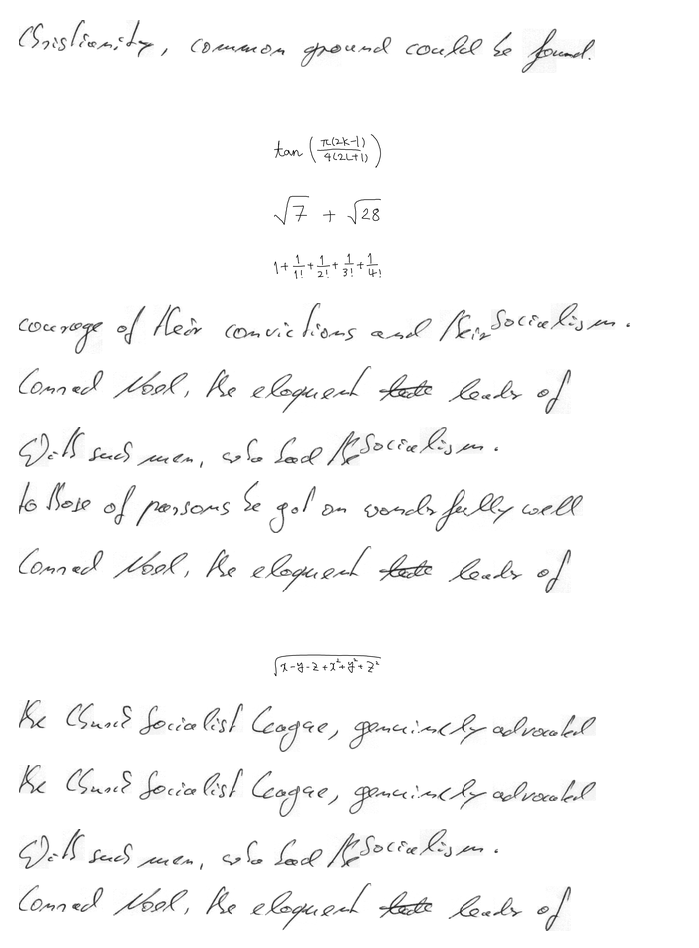 Christianity, common ground could be found.
tan (π(2k-1)/4(2L+1))
√7 + √28
1+1/1!+1/2!+1/3!+1/4!
courage of their convictions and their Socialism.
Conrad Noel, the eloquent leader of
With such men, who had the Socialism.
to those of persons he got on wonderfully well
Conrad Noel, the eloquent leader of
√(x-y-z+x²+y²+z²)
the Church Socialist League, genuinely advocated
the Church Socialist League, genuinely advocated
With such men, who had the Socialism.
Conrad Noel, the eloquent leader of